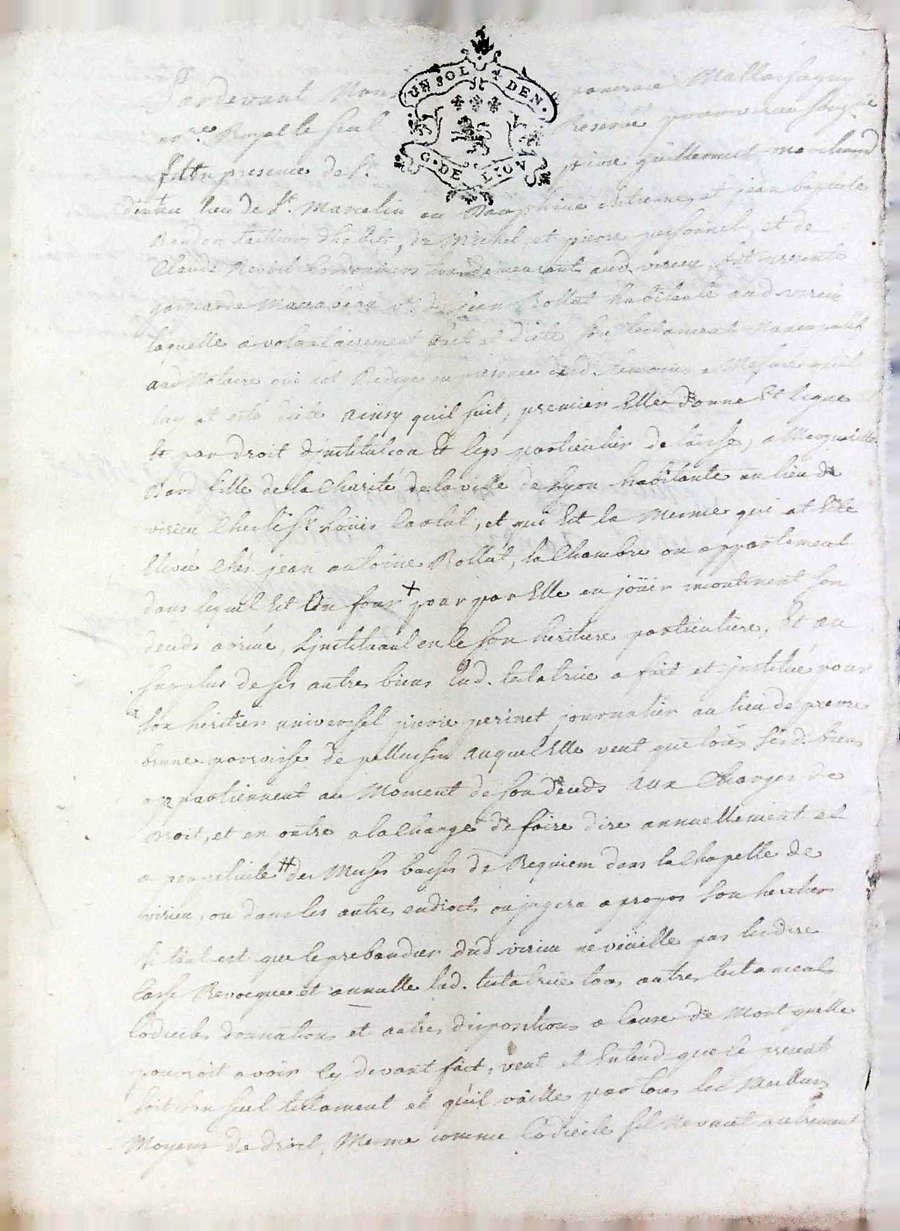 UN SOL 4 DEN.
G. DE LYON
Pardevant
no.re Royal le seul
fut en presence de Sr. pierre guillermet marchand
du lieu de St. Marcelin en Dauphine Estienne et jean baptiste
tailleurs dhabits, de Michel et pierre personnel, et de
Claude demeurant aud. virieu, fut presente
de jean Rollat habitante aud virieu
laquelle a volontairement dict et dicté son testament
aud Notaire qui lat Redigé en presence desd. temoins a Mesure quil
luy at esté dicté ainsy quil suit, premier Elle donne Et legue
Et par droit dinstitution Et legs particulier delaisse, a
Bard fille de la Charité de la ville de Lyon habitante au lieu de
virieu Ches le Sr. Loüis et qui Est la Mesme qui at Esté
Elevée Ches jean antoine Rollat, la Chambre ou appartement
dans lequel Est Un four + pour par Elle en joüir incontinent son
deceds arrivé, Linstituant en ce son heritiere particuliere, Et au
surplus de ses autres biens Lad. testatrice a fait et institué pour
son heritier universel pierre perinet journalier au lieu de
parroisse de pellussin auquel Elle veut que tous sesd. biens
appartiennent au Moment de son deceds aux Charges de
droit, et en outre a la Charge de faire dire annuellement et
a perpetuité # des Messes basses de Requiem dans la Chapelle de
virieu, ou dans les autres endroits ou jugera a propos son heritier
Si tant est que le prebandier dud virieu ne veüille pas les dire
Casse Revocque et annulle lad. testatrice tous autres testaments
Codicils donnations et autres dispositions a Cause de Mort quelle
pourroit avoir cy devant fait, veut et Entend que le present
soit son seul testament et quil vaille par tous les Meilleurs
Moyens de droit, Mesme comme Codicile sil ne vaut autrement